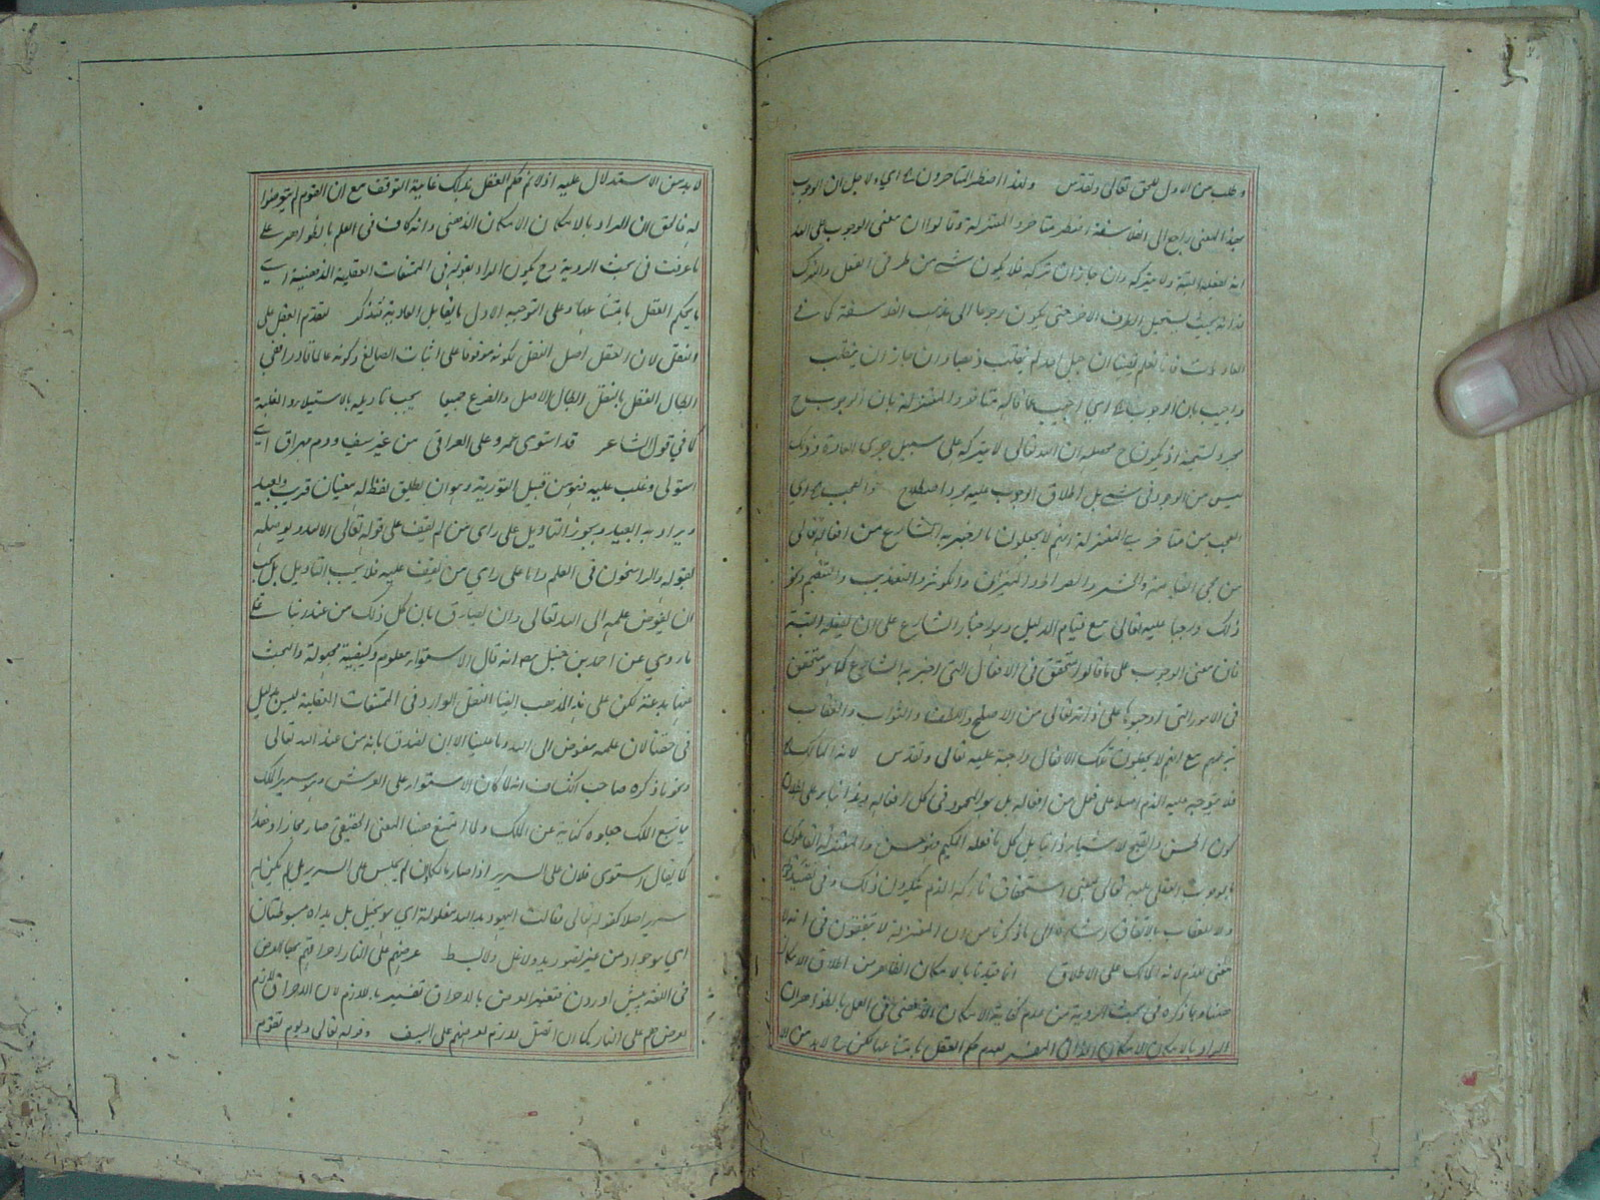 ولهذا اضطر المتأخرون اي ولاجل ان الوجوب
بهذا المعنى راجع الى الفلاسفة اضطر متاخروا المعتزلة وقالوا ان معنى الوجوب على الله
انه يفعله البتة ولا يتركه وان جاز ان تركه فلا يكون شي من طرفي الفعل والترك
بحيث يستحيل الطرف الاخر حتى يكون رجوعا الى مذهب الفلاسفة كما في
العاديات فانا نعلم يقينا ان جبل احد لم ينقلب ذهبا وان جاز ان ينقلب
واجيب بان الوجوب اي اجيب عما قاله متاخروا المعتزلة بان الوجوب ح
مجرد تسمية اذ يكون ح محصله ان الله تعالى لا يتركه على سبيل جري العادة وذلك
ليس من الوجوب في شي بل اطلاق الوجوب عليه مجرد اصطلاح والعجب اي
العجب من متاخري المعتزلة انهم لا يجعلون ما اخبر به الشارع من افعاله تعالى
من مجي القيامة والحشر والصراط والميزان والكوثر والتعذيب والتنعيم ونحو
ذلك واجبا عليه تعالى مع قيام الدليل وهو اخبار الشارع على ان يفعله البتة
فان معنى الوجوب على ما قالوا متحقق في الافعال التي اخبر به الشارع كما هو متحقق
في الامور التي اوجبوها على ذاته تعالى من الاصلح واللطف والثواب والعقاب
مع انهم لا يجعلون تلك الافعال واجبة عليه تعالى وتقدس لانه المالك
فلا يتوجه عليه الذم اصلا على فعل من افعاله بل هو المحمود في كل افعاله وهذا بناء على
كون الحسن والقبح لاشياء ذاتيا بل كل ما فعله الحكيم فهو حسن والمعتزلة القائلون
بوجوب العقل عليه تعالى بمعنى استحقاق تاركه الذم ينكرون ذلك وفي
ولا العقاب بالاتفاق اشارة الى ما ذكرنا من ان المعتزلة لا يتفقون في انه لا
معنى للذم لانه المالك على الاطلاق انما قيدنا بالامكان الظاهر من اطلاق الامكان
ههنا وما ذكره في بحث الروية من عدم كفاية الامكان الذهني في العمل بالظواهر ان
المراد بالامكان الامكان الذاتي المفسر بعدم حكم العقل بامتناعه لكن ح لا بد من الا
لا بد من الاستدلال عليه اذ لا نم حكم العقل بذلك غاية التوقف مع ان القوم لم يتعرضوا
له فالحق ان المراد بالامكان الامكان الذهني وانه كاف في العلم بالظواهر على
ما عرفت في بحث الروية وح يكون المراد بقوله في الممتنعات العقلية الذهنية اي
ما يحكم العقل بامتناعها وعلى التوجيه الاول ما يقابل العادية فتذكر لتقدم العقل على
النقل لان العقل اصل النقل لكونه موقوفا على اثبات الصانع وكونه عالما قادرا ففي
ابطال العقل بالنقل ابطال الاصل والفرع جميعا يجب تاويله بالاستيلاء والغلبة
كما في قول الشاعر قد استوى عمرو على العراق من غير سيف ودم مهراق اي
استولى وغلب عليه فهو من قبيل التورية وهو ان يطلق لفظ له معنيان قريب وبعيد
ويراد به البعيد ويجوز التاويل على راي من لم يقف على قوله تعالى الا الله ويوصله
بقوله والراسخون في العلم واما على راي من يقف عليه فلا يجب التاويل بل يجب
ان يفوض علمه الى الله تعالى وان يصدق بان كل ذلك من عند ربنا على
ما روي عن احمد بن حنبل رح انه قال الاستواء معلوم وكيفية مجهولة والبحث
عنها بدعة لكن على هذا المذهب ايضا النقل الوارد في الممتنعات العقلية ليس بدليل
في حقنا لان علمه مفوض الى الله وما علينا الا ان نصدق بانه من عند الله تعالى
ونحو ما ذكره صاحب الكشاف انه لما كان الاستواء على العرش وهو سرير الملك
مما يتبع الملك جعلوه كناية عن الملك ولما امتنع ههنا المعنى الحقيقي صار مجازا وهذا
كما يقال استوى فلان على السرير اذا صار مالكا وان لم يجلس على السرير بل لم يكن له
سرير اصلا كقوله تعالى وقالت اليهود يد الله مغلولة اي هو بخيل بل يداه مبسوطتان
اي هو جواد من غير تصور يد ولا غل ولا بسط عرضهم على النار احراقهم بها العرض
في اللغة پیش اوردن فتفسير العرض بالاحراق تفسير باللازم لان الاحراق لازم
لعرضهم على النار كما ان القتل لازم لعرضهم على السيف وقوله تعالى ويوم تقوم